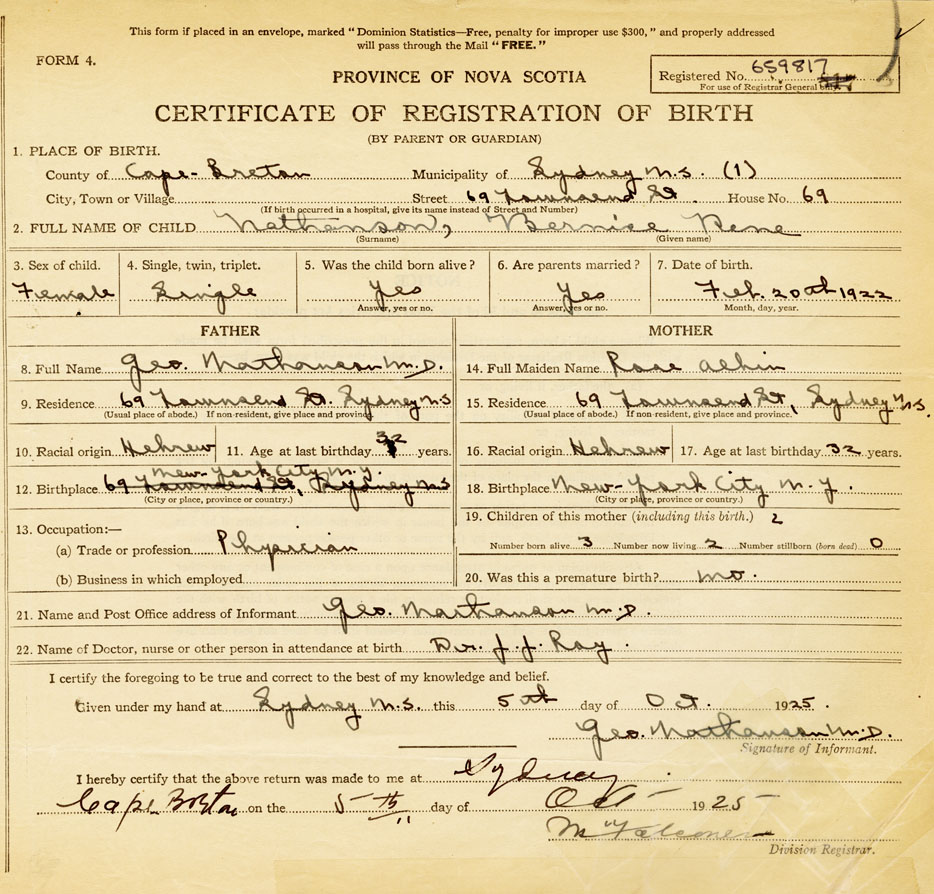 This form if placed in an envelope, marked "Dominion Statistics—Free, penalty for improper use $300," and properly addressed
will pass through the Mail "FREE."
FORM 4.
PROVINCE OF NOVA SCOTIA
Registered No. 659817
For use of Registrar General only.
CERTIFICATE OF REGISTRATION OF BIRTH
(BY PARENT OR GUARDIAN)
1. PLACE OF BIRTH.
County of Cape-Breton Municipality of Sydney N.S. (1)
City, Town or Village Street 69 Townsend St House No. 69
(If birth occurred in a hospital, give its name instead of Street and Number)
2. FULL NAME OF CHILD Nathanson, Bernice Rene
(Surname) (Given name)
3. Sex of child. 4. Single, twin, triplet. 5. Was the child born alive? 6. Are parents married? 7. Date of birth.
Female Single Yes Yes Feb. 20th 1922
Answer, yes or no. Answer, yes or no. Month, day, year.
FATHER MOTHER
8. Full Name Geo. Nathanson M.D. 14. Full Maiden Name Rose
9. Residence 69 Townsend St. Sydney N.S 15. Residence 69 Townsend St, Sydney N.S.
(Usual place of abode.) If non-resident, give place and province. (Usual place of abode.) If non-resident, give place and province.
10. Racial origin Hebrew 11. Age at last birthday 32 years. 16. Racial origin Hebrew 17. Age at last birthday 32 years.
New-York City N.Y.
12. Birthplace 69 Townsend St, Sydney N.S 18. Birthplace New-York City N.Y.
(City or place, province or country.) (City or place, province or country.)
19. Children of this mother (including this birth.) 2
13. Occupation:—
(a) Trade or profession Physician Number born alive 3 Number now living 2 Number stillborn (born dead) 0
(b) Business in which employed 20. Was this a premature birth? No.
21. Name and Post Office address of Informant Geo. Nathanson M.D.
22. Name of Doctor, nurse or other person in attendance at birth Dr. J. J. Roy.
I certify the foregoing to be true and correct to the best of my knowledge and belief.
Given under my hand at Sydney N.S. this 5th day of Oct. 1925.
Geo. Nathanson M.D.
Signature of Informant.
I hereby certify that the above return was made to me at Sydney
Cape Breton on the 5th day of Oct 1925
Division Registrar.